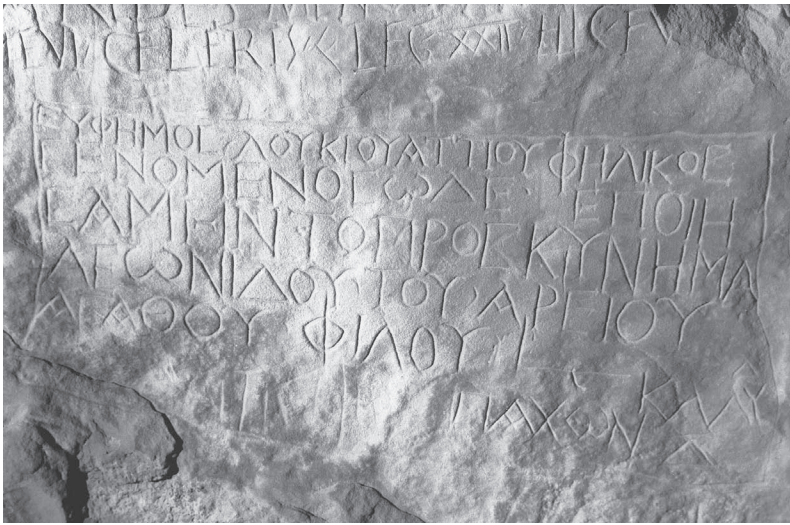 CELERIS LEG HIC
ΕΥΦΗΜΟΣ ΛΟΥΚΙΟΥ ΑΤΤΙΟΥ ΦΗΛΙΚΟΣ
ΓΕΝΟΜΕΝΟΣ ΩΔΕ ΕΠΟΙΗ
ΣΑΜΗΝ ΤΟ ΠΡΟΣΚΥΝΗΜΑ
ΛΕΩΝΙΔΟΥ ΤΟΥ ΑΡΕΙΟΥ
ΑΓΑΘΟΥ ΦΙΛΟΥ
ΠΑΧΩΝ